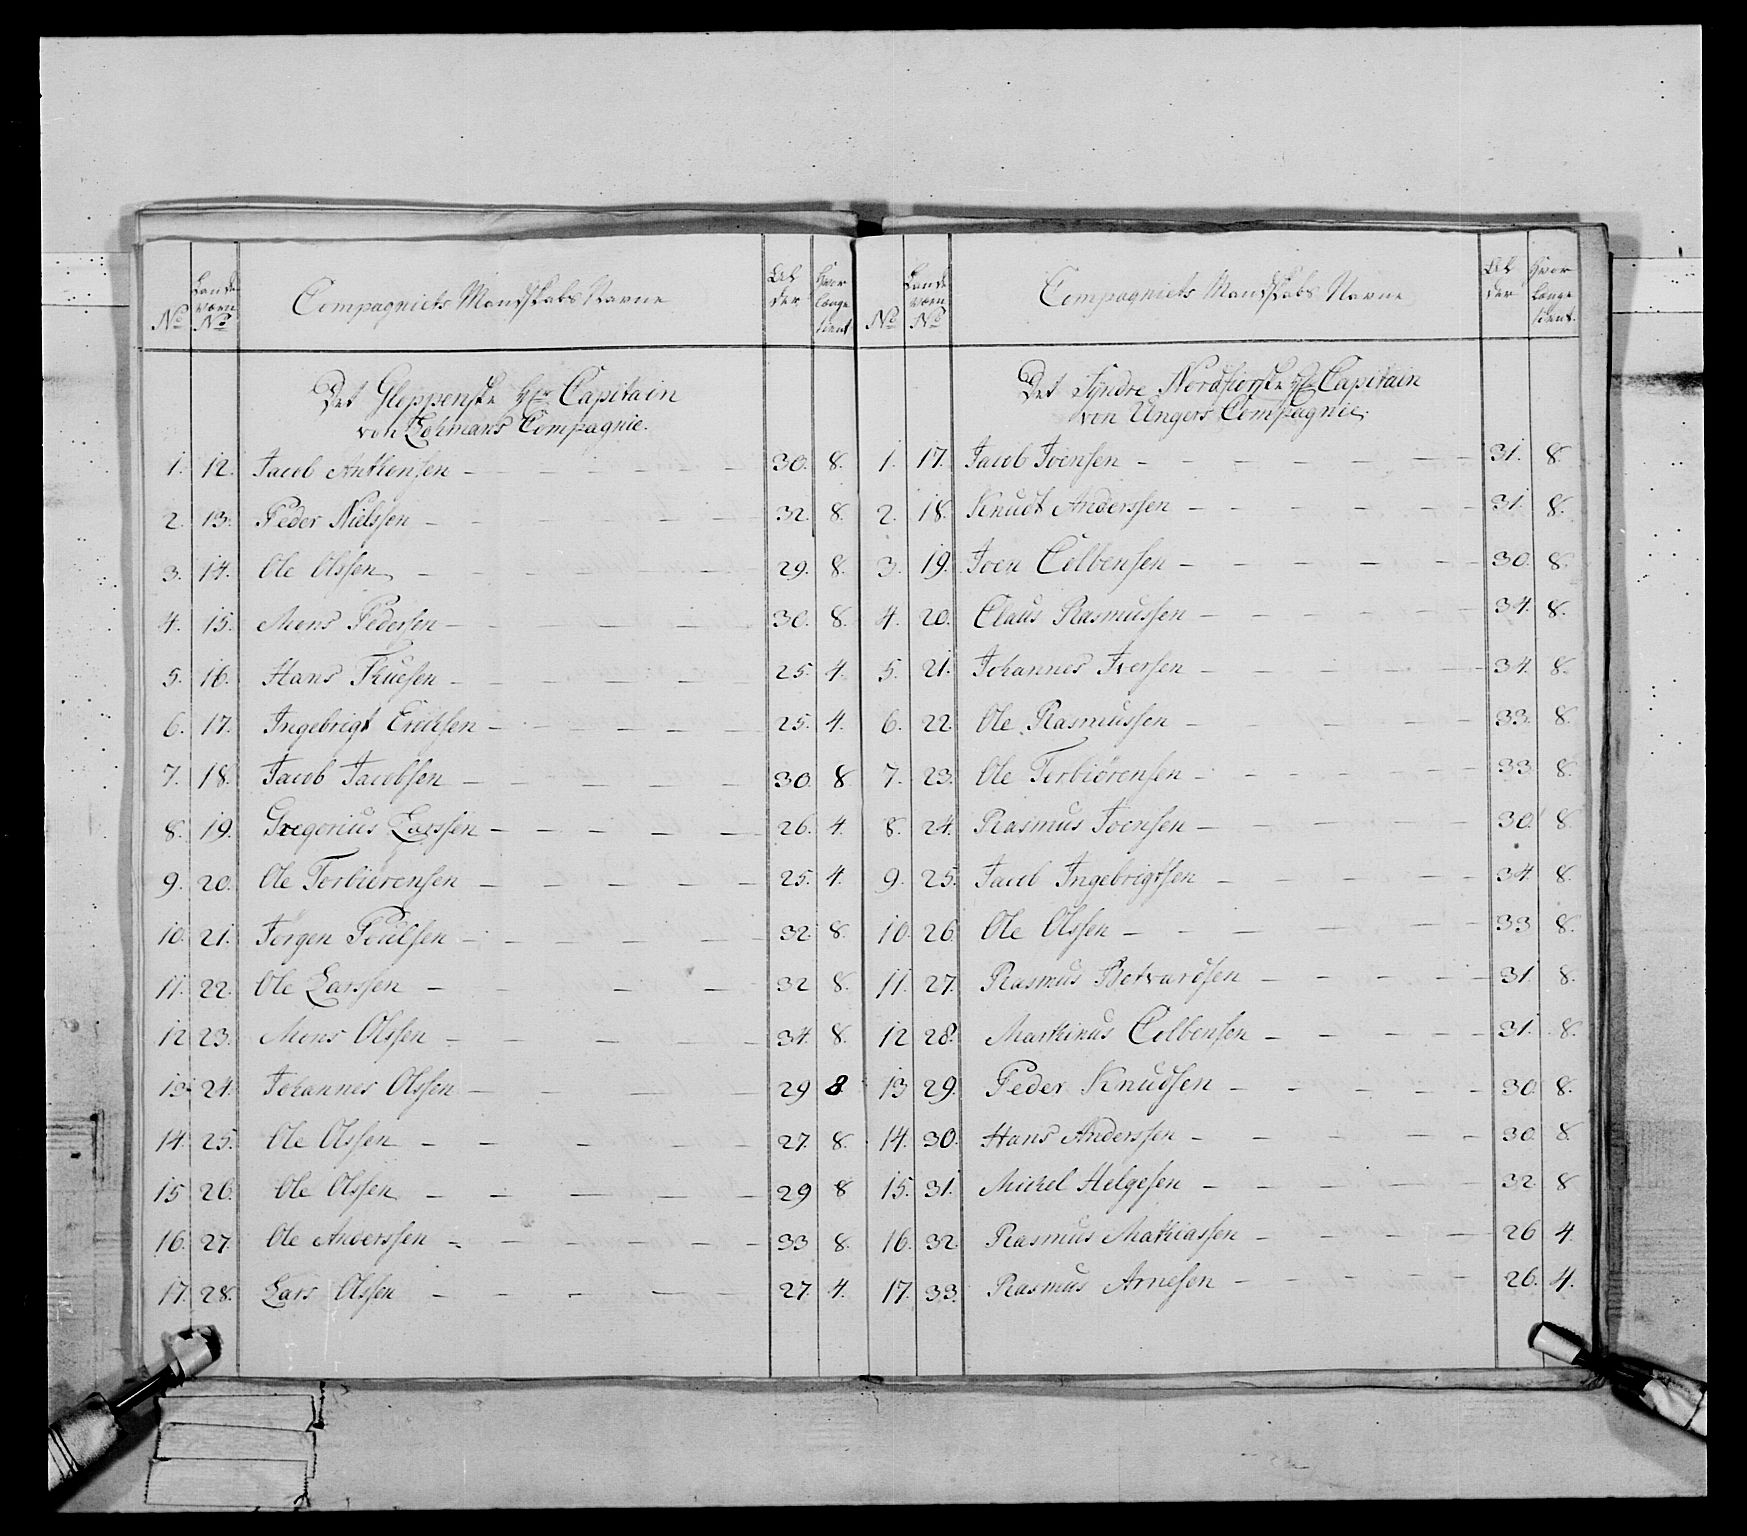 No
Lande
værn
No
Compagniets Mandskabs Navne
Al
der
Hvor
længe
tient
Det Gloppenske Hr Capitain
von Lohmans Compagnie.
1. 12. Jacob Anthonsen 30. 8.
2. 13. Peder Nielssen 32. 8.
3. 14. Ole Olssen 29. 8.
4. 15. Mons Pedersen 30. 8.
5. 16. Hans Thuesen 25. 4.
6. 17. Ingebrigt Erichsen 25. 4.
7. 18. Jacob Jacobsen 30 8
8. 19. Gregorius Larssen 26. 4.
9. 20. Ole Torbiörensen 25. 4.
10. 21. Jörgen Poulsen 32 8.
11. 22. Ole Larssen 32 8.
12 23. Mons Olssen 34. 8.
13. 24. Johannes Olssen 29 8
14. 25. Ole Olssen 27. 8.
15 26. Ole Olssen 29 8
16. 27. Ole Anderssen 33 8.
17. 28. Lars Olssen 27. 4.
No
Lande
værn
No
Compagniets Mandskabs Navne
Al
der
Hvor
længe
tient.
Det Syndre Nordfiorske Hr Capitain
von Ungers Compagnie.
1. 17. Jacob Joensen 31. 8.
2. 18. Knudt Anderssen 31. 8.
3. 19. Joen Colbensen 30. 8.
4. 20. Claus Rasmussen 34. 8.
5. 21. Johannes Iversen 34. 8.
6. 22 Ole Rasmussen 33. 8.
7. 23. Ole Torbiörensen 33 8.
8. 24. Rasmus Joensen 30. 8.
9. 25. Jacob Ingebrigtsen 34 8.
10. 26 Ole Olssen 33 8.
11. 27. Rasmus Botvardsen 31. 8.
12 28. Marthinus Colbensen 31. 8.
13 29. Peder Knudsen 30. 8.
14. 30. Hans Anderssen 30. 8.
15. 31. Michel Helgesen 32. 8
16. 32. Rasmus Mathiassen 26 4.
17. 33. Rasmus Arnesen 26. 4.